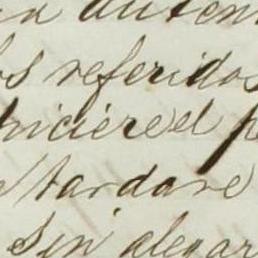 os referidos
hiciere el
tardare
sin alegar